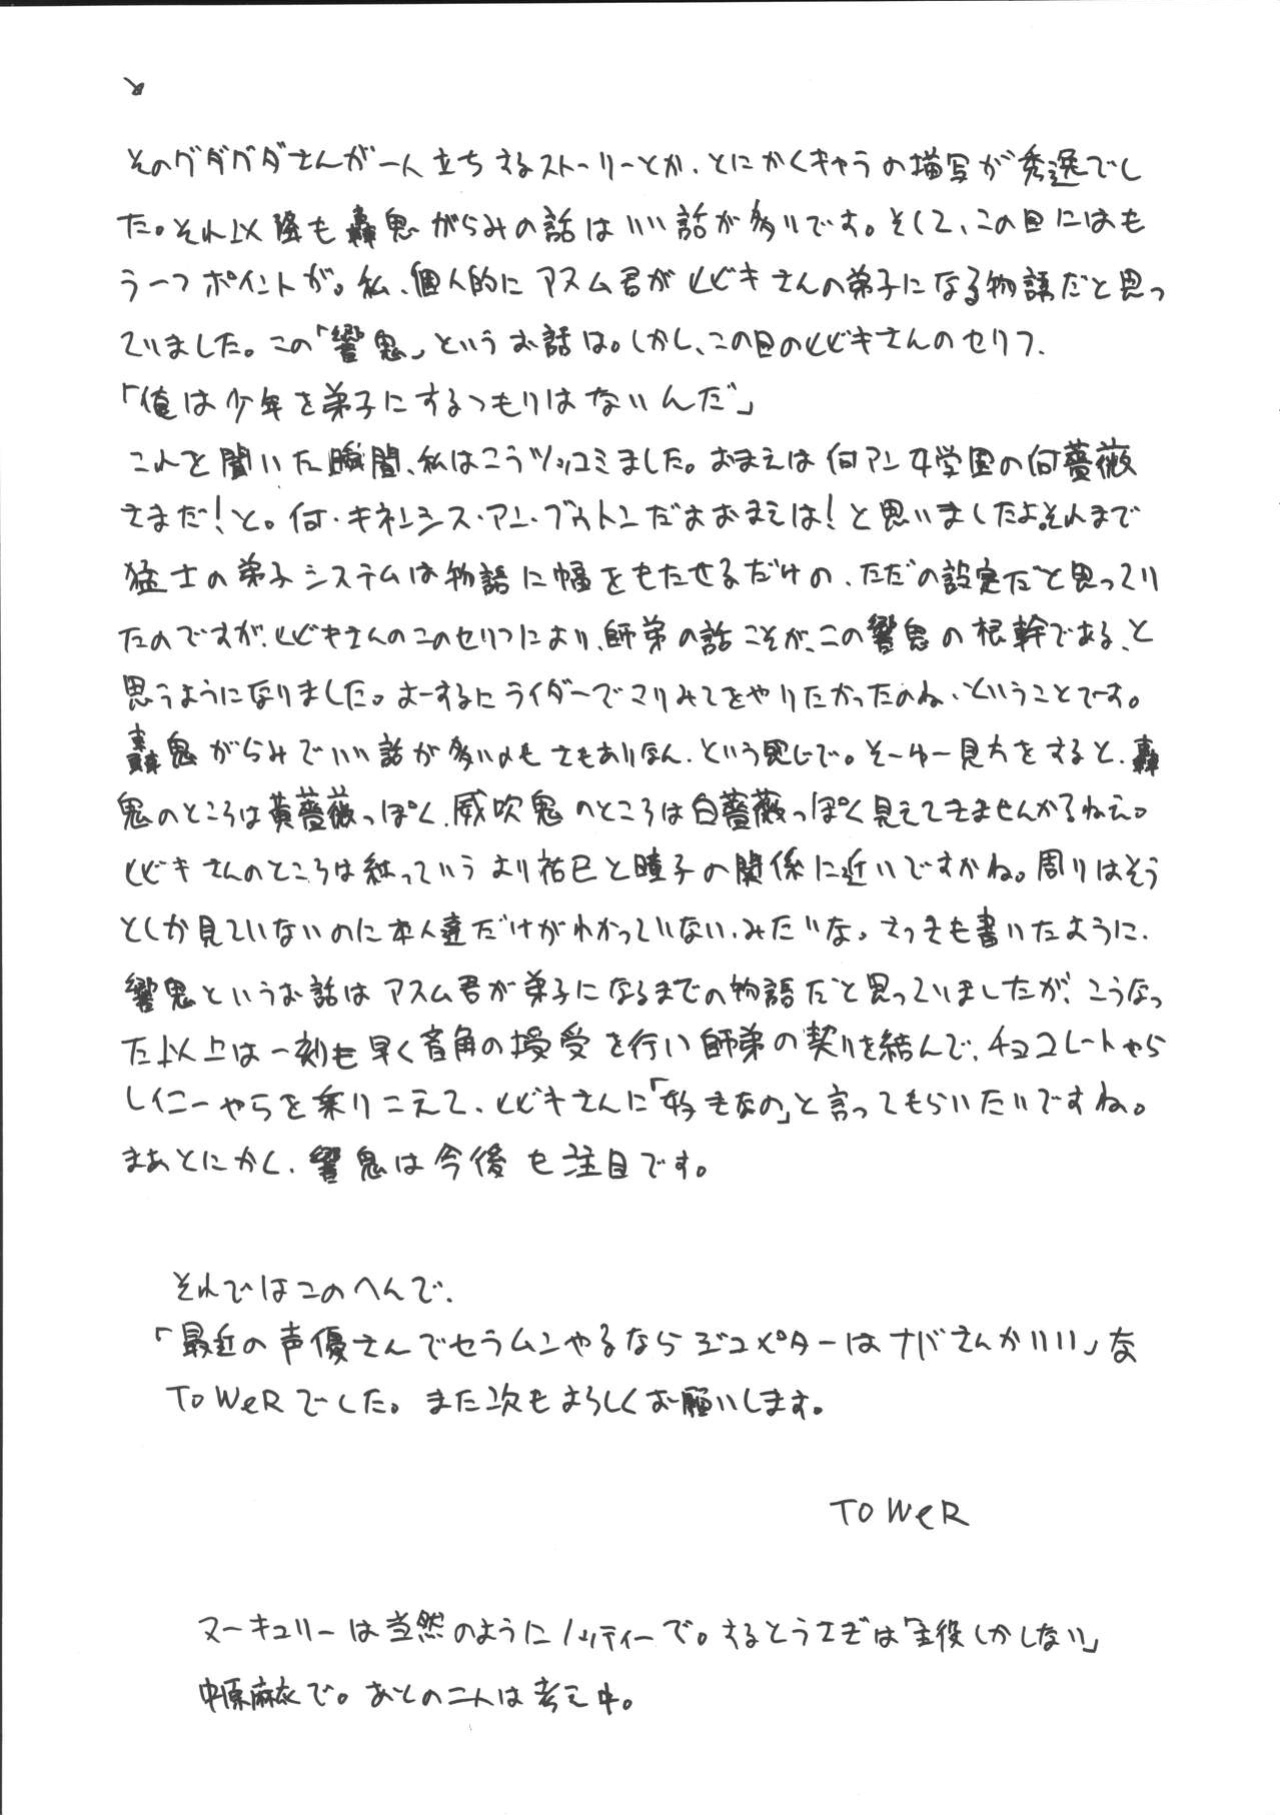 そのグダグダさんが一人立ちするストーリーとか、とにかくキャラの描写が秀逸でし
た。それ以降も轟鬼がらみの話はいい話が多いです。そして、この回にはも
う一つポイントが。私、個人的にアスム君がヒビキさんの弟子になる物語だと思っ
ていました。この「響鬼」というお話は。しかし、この回のヒビキさんのセリフ、
「俺は少年を弟子にするつもりはないんだ」
これを聞いた瞬間、私はこうツッコミました。おまえは何アン女学園の何薔薇
さまだ!と。何・キネンシス・アン・ブゥトンだよおまえは!と思いましたよ。それまで
猛士の弟子システムは物語に幅をもたせるだけの、ただの設定だと思ってい
たのですが、ヒビキさんのこのセリフにより、師弟の話こそが、この響鬼の根幹である、と
思うようになりました。よーするにライダーでマリみてをやりたかったのね、ということです。
轟鬼がらみでいい話が多いのもさもありなん、という感じで。そーゆー見方をすると、轟
鬼のところは黄薔薇っぽく、威吹鬼のところは白薔薇っぽく見えてきませんかねぇ。
ヒビキさんのところは紅っていうより祐巳と瞳子の関係に近いですかね。周りはそう
としか見ていないのに本人達だけがわかっていない、みたいな。さっきも書いたように、
響鬼というお話はアスム君が弟子になるまでの物語だと思っていましたが、こうなっ
た以上は一刻も早く音角の授受を行い師弟の契りを結んで、チョコレートやら
レイニーやらを乗りこえて、ヒビキさんに「好きなの」と言ってもらいたいですね。
まあとにかく、響鬼は今後も注目です。
それではこのへんで、
「最近の声優さんでセラムンやるならジュピターはナバさんがいい」な
ToWeRでした。また次もよろしくお願いします。
ToWeR
マーキュリーは当然のようにノッティーで。するとうさぎは「主役しかしない」
中原麻衣で。あとの二人は考え中。